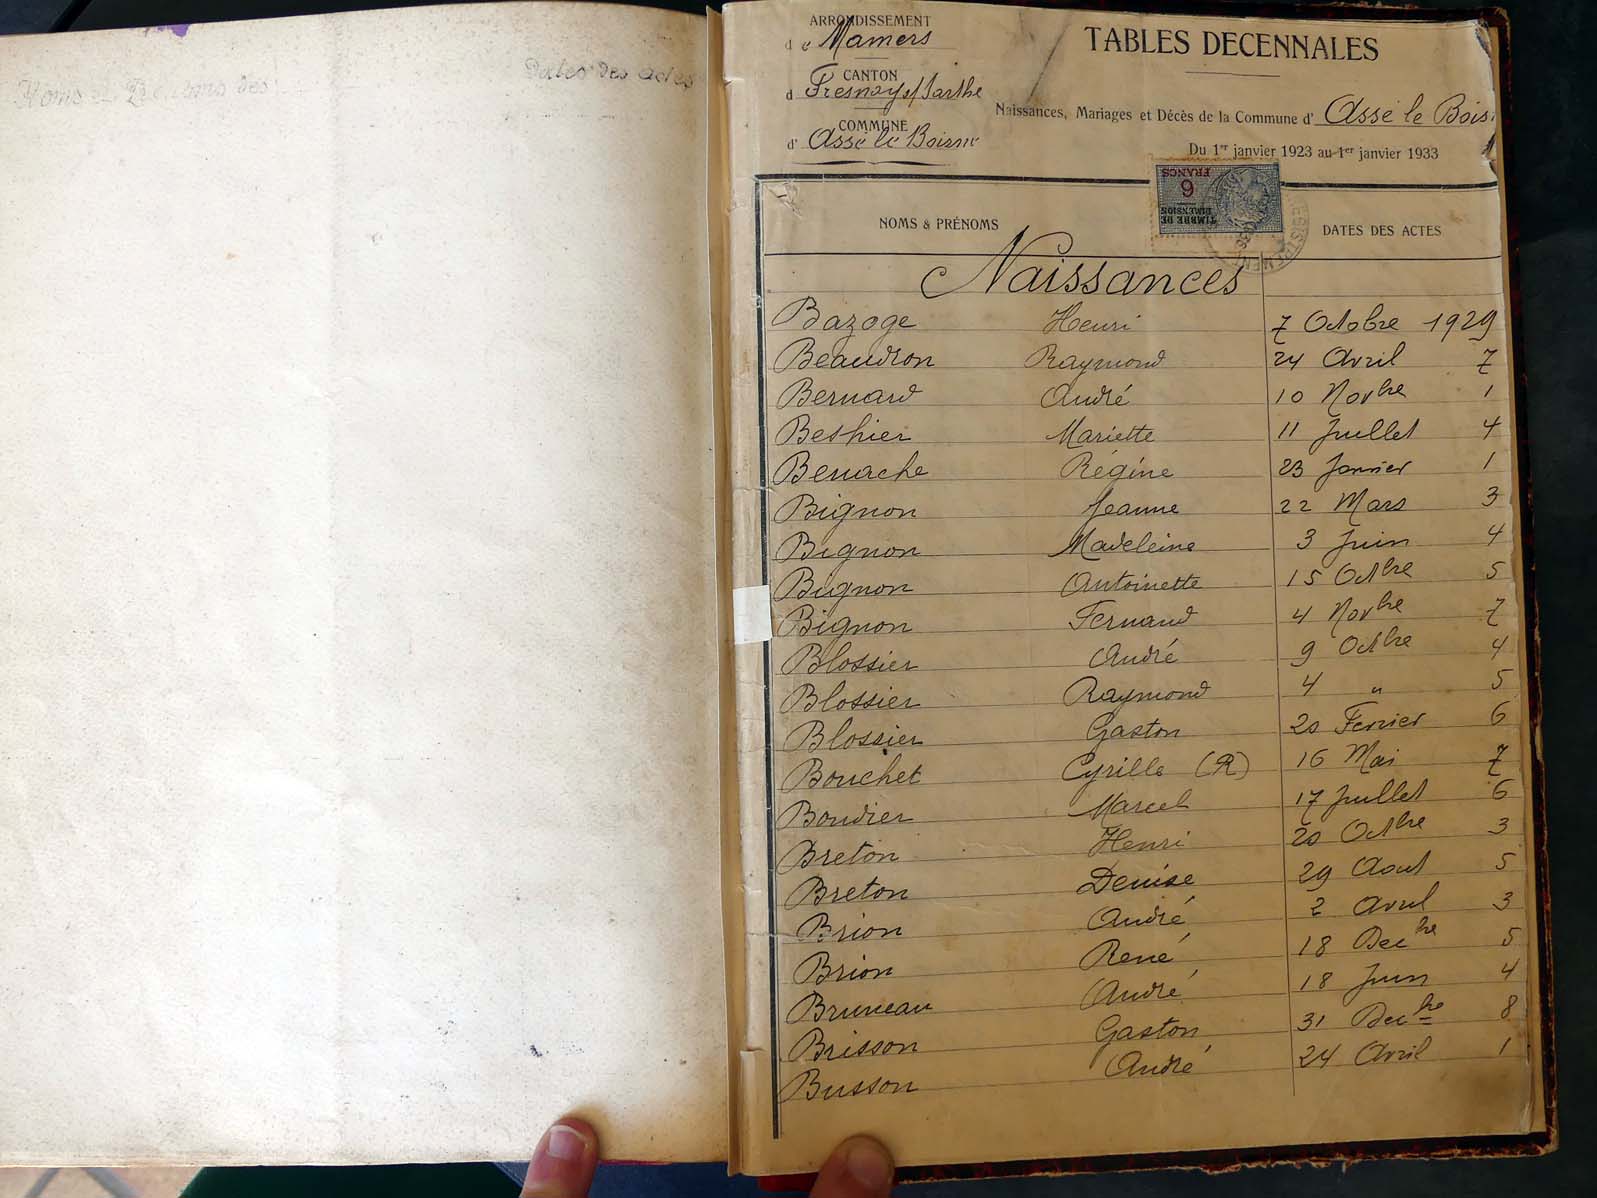 Noms et Prénoms des
Dates des actes
ARRONDISSEMENT
de Mamers
CANTON
d Fresnay s/ Sarthe
COMMUNE
d' Assé le Boisne
TABLES DECENNALES
Naissances, Mariages et Décès de la Commune d' Assé le Bois
Du 1er janvier 1923 au 1er janvier 1933
6 FRANCS
TIMBRE DE DIMENSION
NOMS & PRÉNOMS DATES DES ACTES
Naissances
Bazoge Henri 7 Octobre 1929
Beaudron Raymond 24 Avril 7
Bernard André 10 Novbre 1
Bethier Mariette 11 Juillet 4
Benache Régine 23 Janvier 1
Bignon Jeanne 22 Mars 3
Bignon Madeleine 3 Juin 4
Bignon Antoinette 15 Octbre 5
Bignon Fernand 4 Novbre 7
Blossier André 9 Octbre 4
Blossier Raymond 4 " 5
Blossier Gaston 20 Fevrier 6
Bouchet Cyrille (R) 16 Mai 7
Boudier Marcel 17 Juillet 6
Breton Henri 20 Octbre 3
Breton Denise 29 Aout 5
Brion André 2 Avril 3
Brion René 18 Decbre 5
Bruneau André 18 Juin 4
Brisson Gaston 31 Decbre 8
Busson André 24 Avril 1